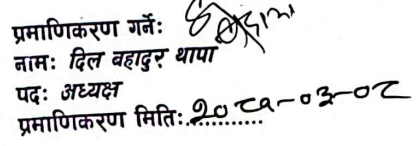 प्रमाणिकरण गर्नेः
नामः दिल बहादुर थापा
पदः अध्यक्ष
प्रमाणिकरण मितिः २०८१-०३-०८